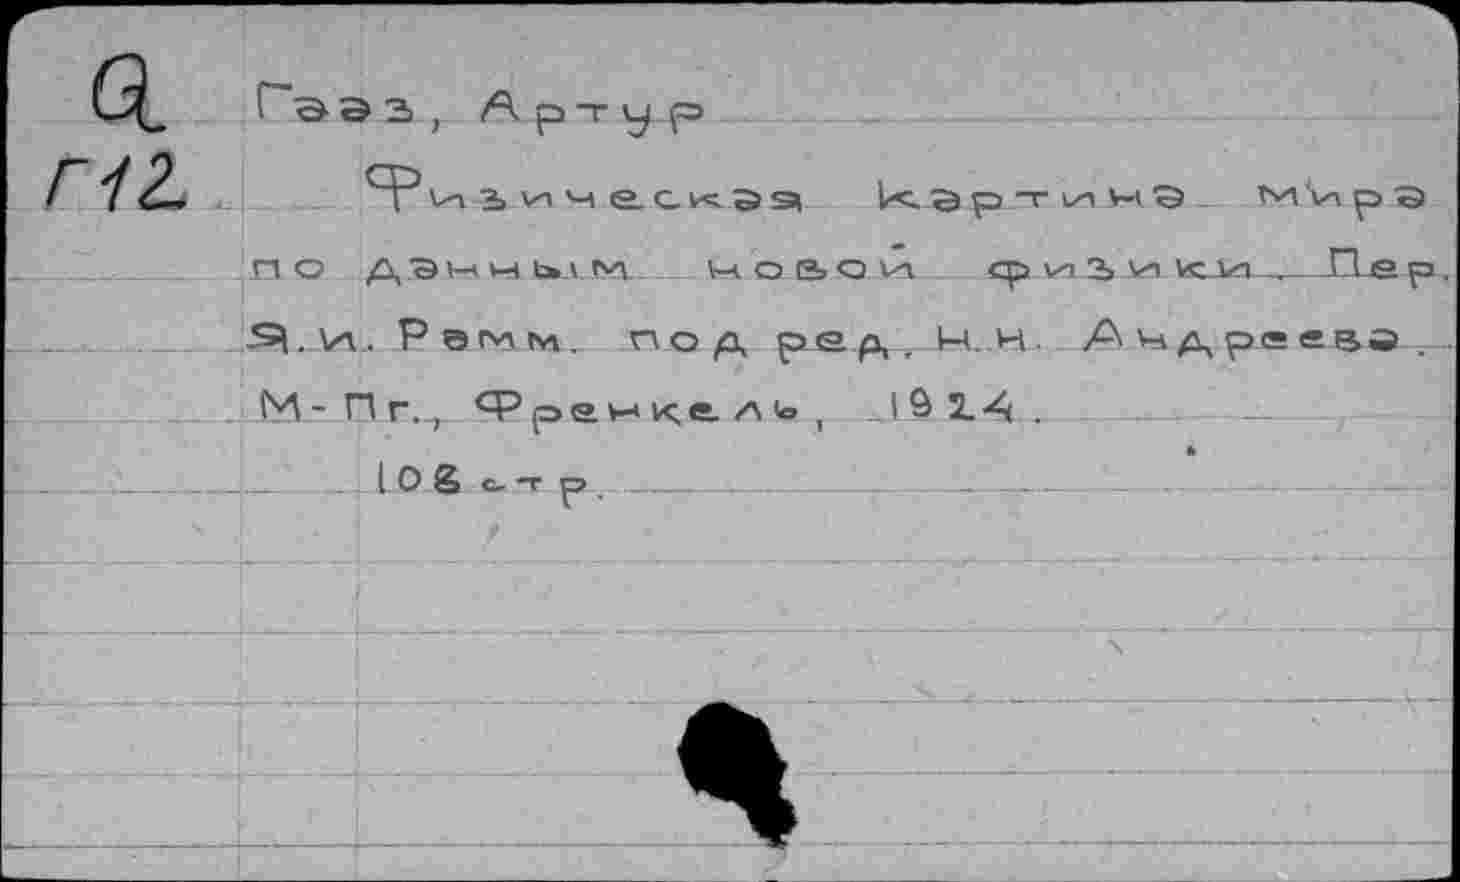 Q Гааз, Артур
Г12 Физическая картина мира
по данным новой физики. Пер.
Я.И. Рамм. под ред. Н.Н. Андреева.
М-Пг., Френкель, 1924.
108 стр.